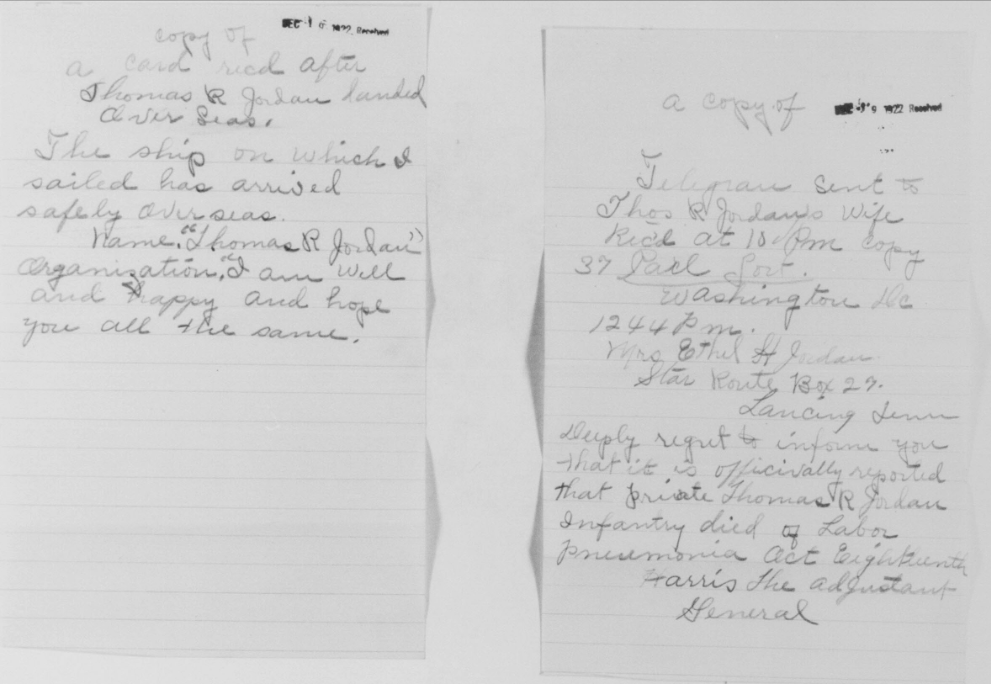 DEC 1 1922 Received
copy of
a card recd after
Thomas R Jordan landed
Over Seas.
The ship on which I
sailed has arrived
safely Over seas.
Name, "Thomas R Jordan"
Organization, "I am well
and happy and hope
you all the same.
a copy of
1922 Received
Telegram Sent to
Thos R Jordan's Wife
Rec'd at 10 Pm copy
37
Washington Dc
1244 Pm.
Mrs Ethel H Jordan
Star Route Box 27.
Lancing Tenn
Deeply regret to inform you
that it is officivally reported
that private Thomas R Jordan
Infantry died of Labor
Pneumonia Oct Eighteenth
Harris the adjustant
General